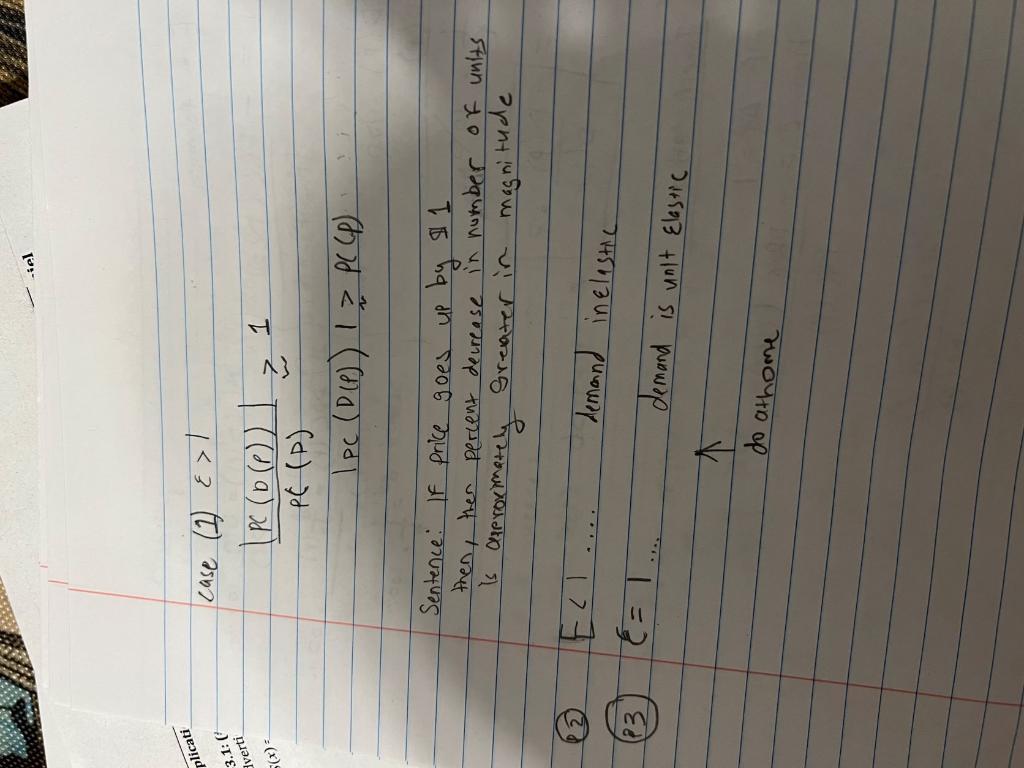 case (1) ε > 1
|PC (D(P))| > 1
PC (P)
|PC (D(P))| > PC(P)
Sentence: IF price goes up by $1
then, then percent decrease in number of units
is approximately greater in magnitude
P2 E < 1 .... demand inelastic
P3 ε = 1 .... demand is unit Elastic
↑
do at home
plicati
3.1: (